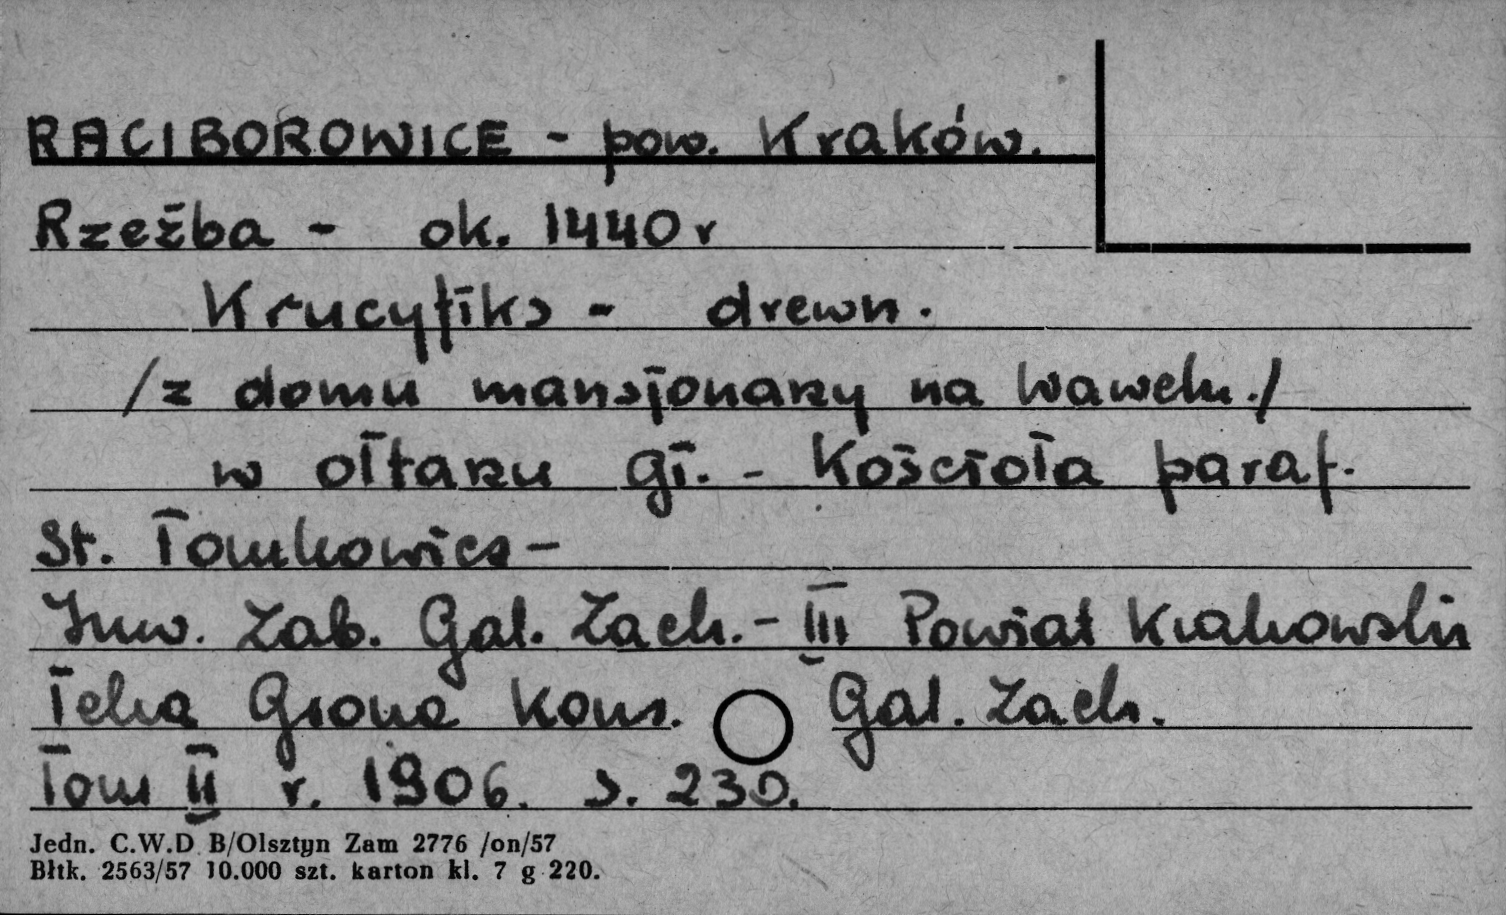 RACIBOROWICE - pow. Kraków.
Rzeźba - ok. 1440 r
Krucyfiks - drewn.
/z domu mansjonarzy na Wawelu./
w ołtarzu gł. - Kościoła paraf.
St. Tomkowicz -
Inw. Zab. Gal. Zach. - III Powiat Krakowski
Teka Grona Kons. Gal. Zach.
Tom II r. 1906. s. 230.
Jedn. C.W.D B/Olsztyn Zam 2776 /on/57
Błtk. 2563/57 10.000 szt. karton kl. 7 g 220.